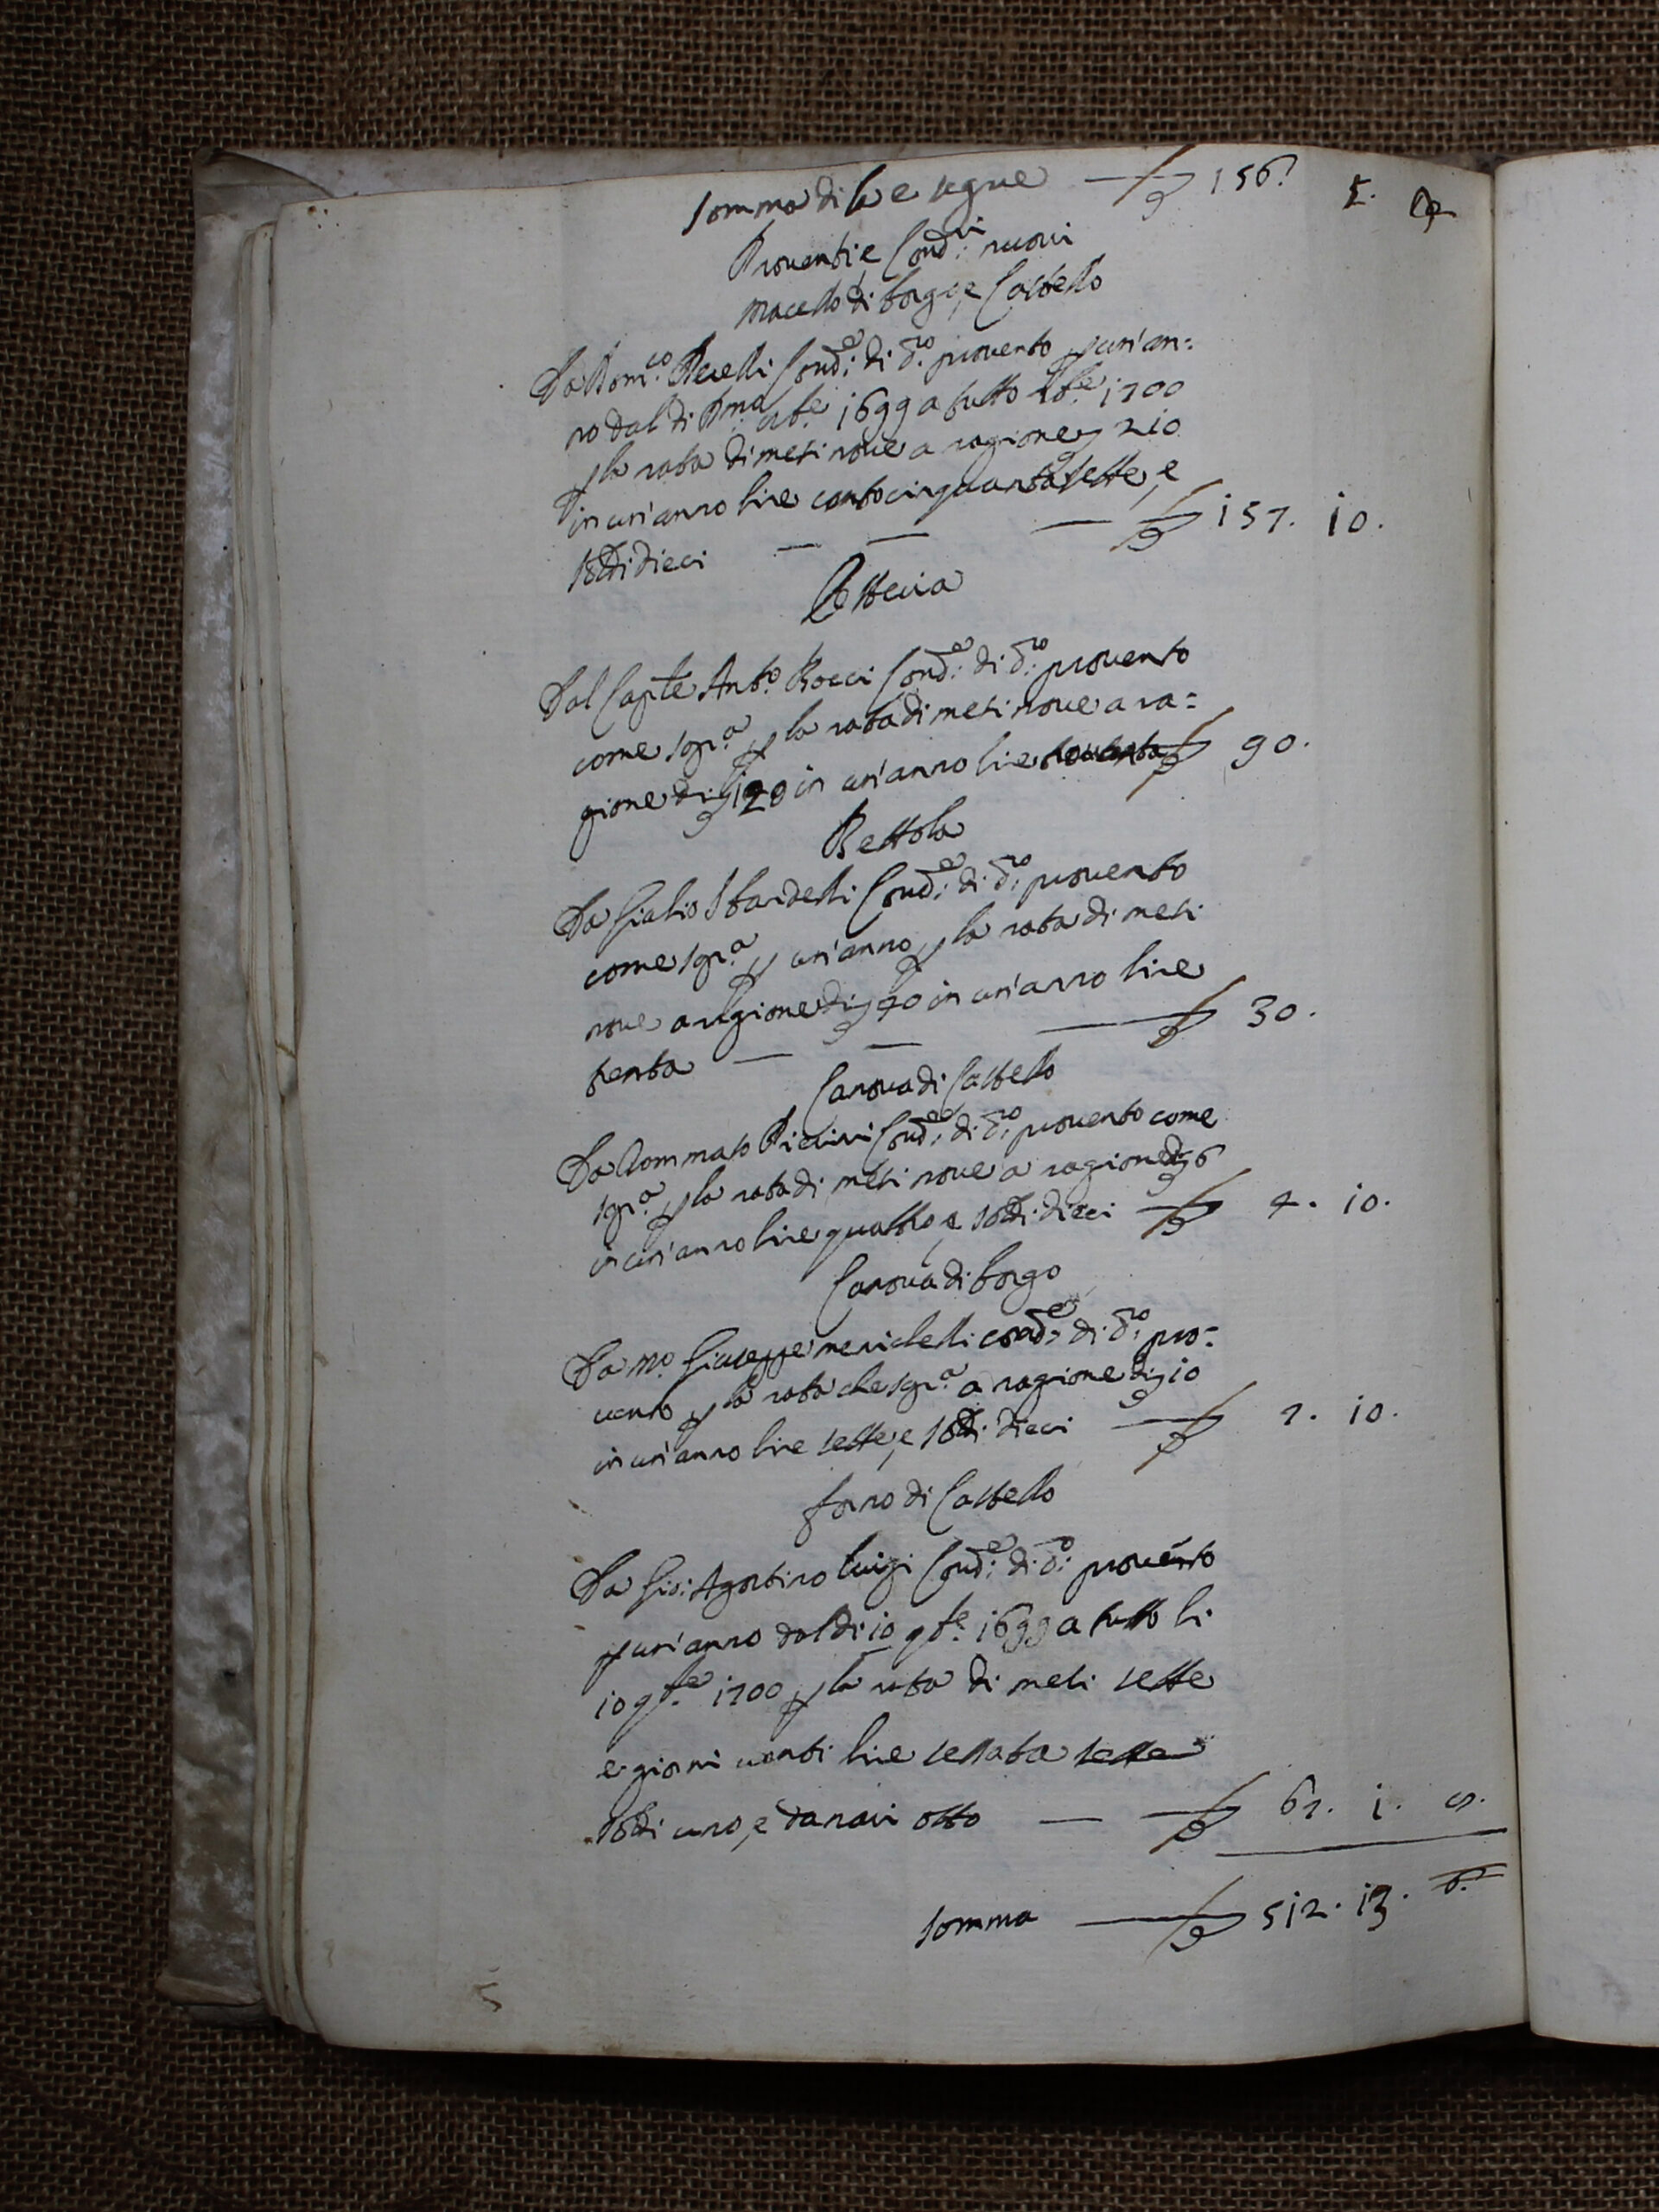 Somma di là e segue £ 156. 5.
Proventi, e Cond.ri nuovi
Macello di borgo, e Castello
Da Dom.co Recelli Cond.e di d.o provento p un'an=
no dal di p.ma 8b.e 1699 a tutto 7b.e 1700
p la rata di mesi nove a ragione £ 210
in un'anno lire cento cinquanta sette, e
soldi dieci £ 157. 10.
Osteria
Dal Cap.te Ant.o Rocci Cond.e di d.o provento
come sop.a p la rata di mesi nove a ra=
gione di £ 120 in un'anno lire novanta £ 90.
Bettola
Da Giulio Sbardelli Cond.e di d.o provento
come sop.a p un'anno p la rata di mesi
nove a ragione di £ 40 in un'anno lire
trenta £ 30.
Canova di Castello
Da Tommaso Piccini Cond.e di d.o provento come
sop.a p la rata di mesi nove a ragione di £ 6
in un'anno lire quattro, e soldi dieci £ 4. 10.
Canova di borgo
Da m.o Giuseppe menichelli cond.e di d.o pro=
vento p la rata che sop.a a ragione di £ 10
in un'anno lire sette, e soldi dieci £ 7. 10.
forno di Castello
Da Gio: Agostino Luigi Cond.e di d.o provento
p un'anno dal di 10 9b.e 1699 a tutto li
10 9b.e 1700 p la rata di mesi sette
e giorni venti lire sessanta sette
soldi uno, e danari otto £ 67. 1. 8.
Somma £ 512. 13.